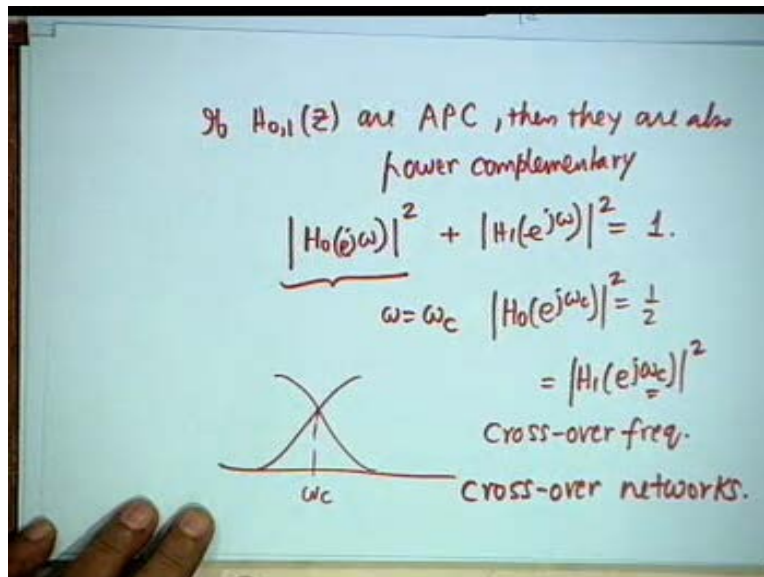 If H₀,₁(z) are APC, then they are also
power complementary
|H₀(e^jω)|² + |H₁(e^jω)|² = 1.
ω = ω_c |H₀(e^jω_c)|² = 1/2
= |H₁(e^jω_c)|²
Cross-over freq.
ω_c
Cross-over networks.